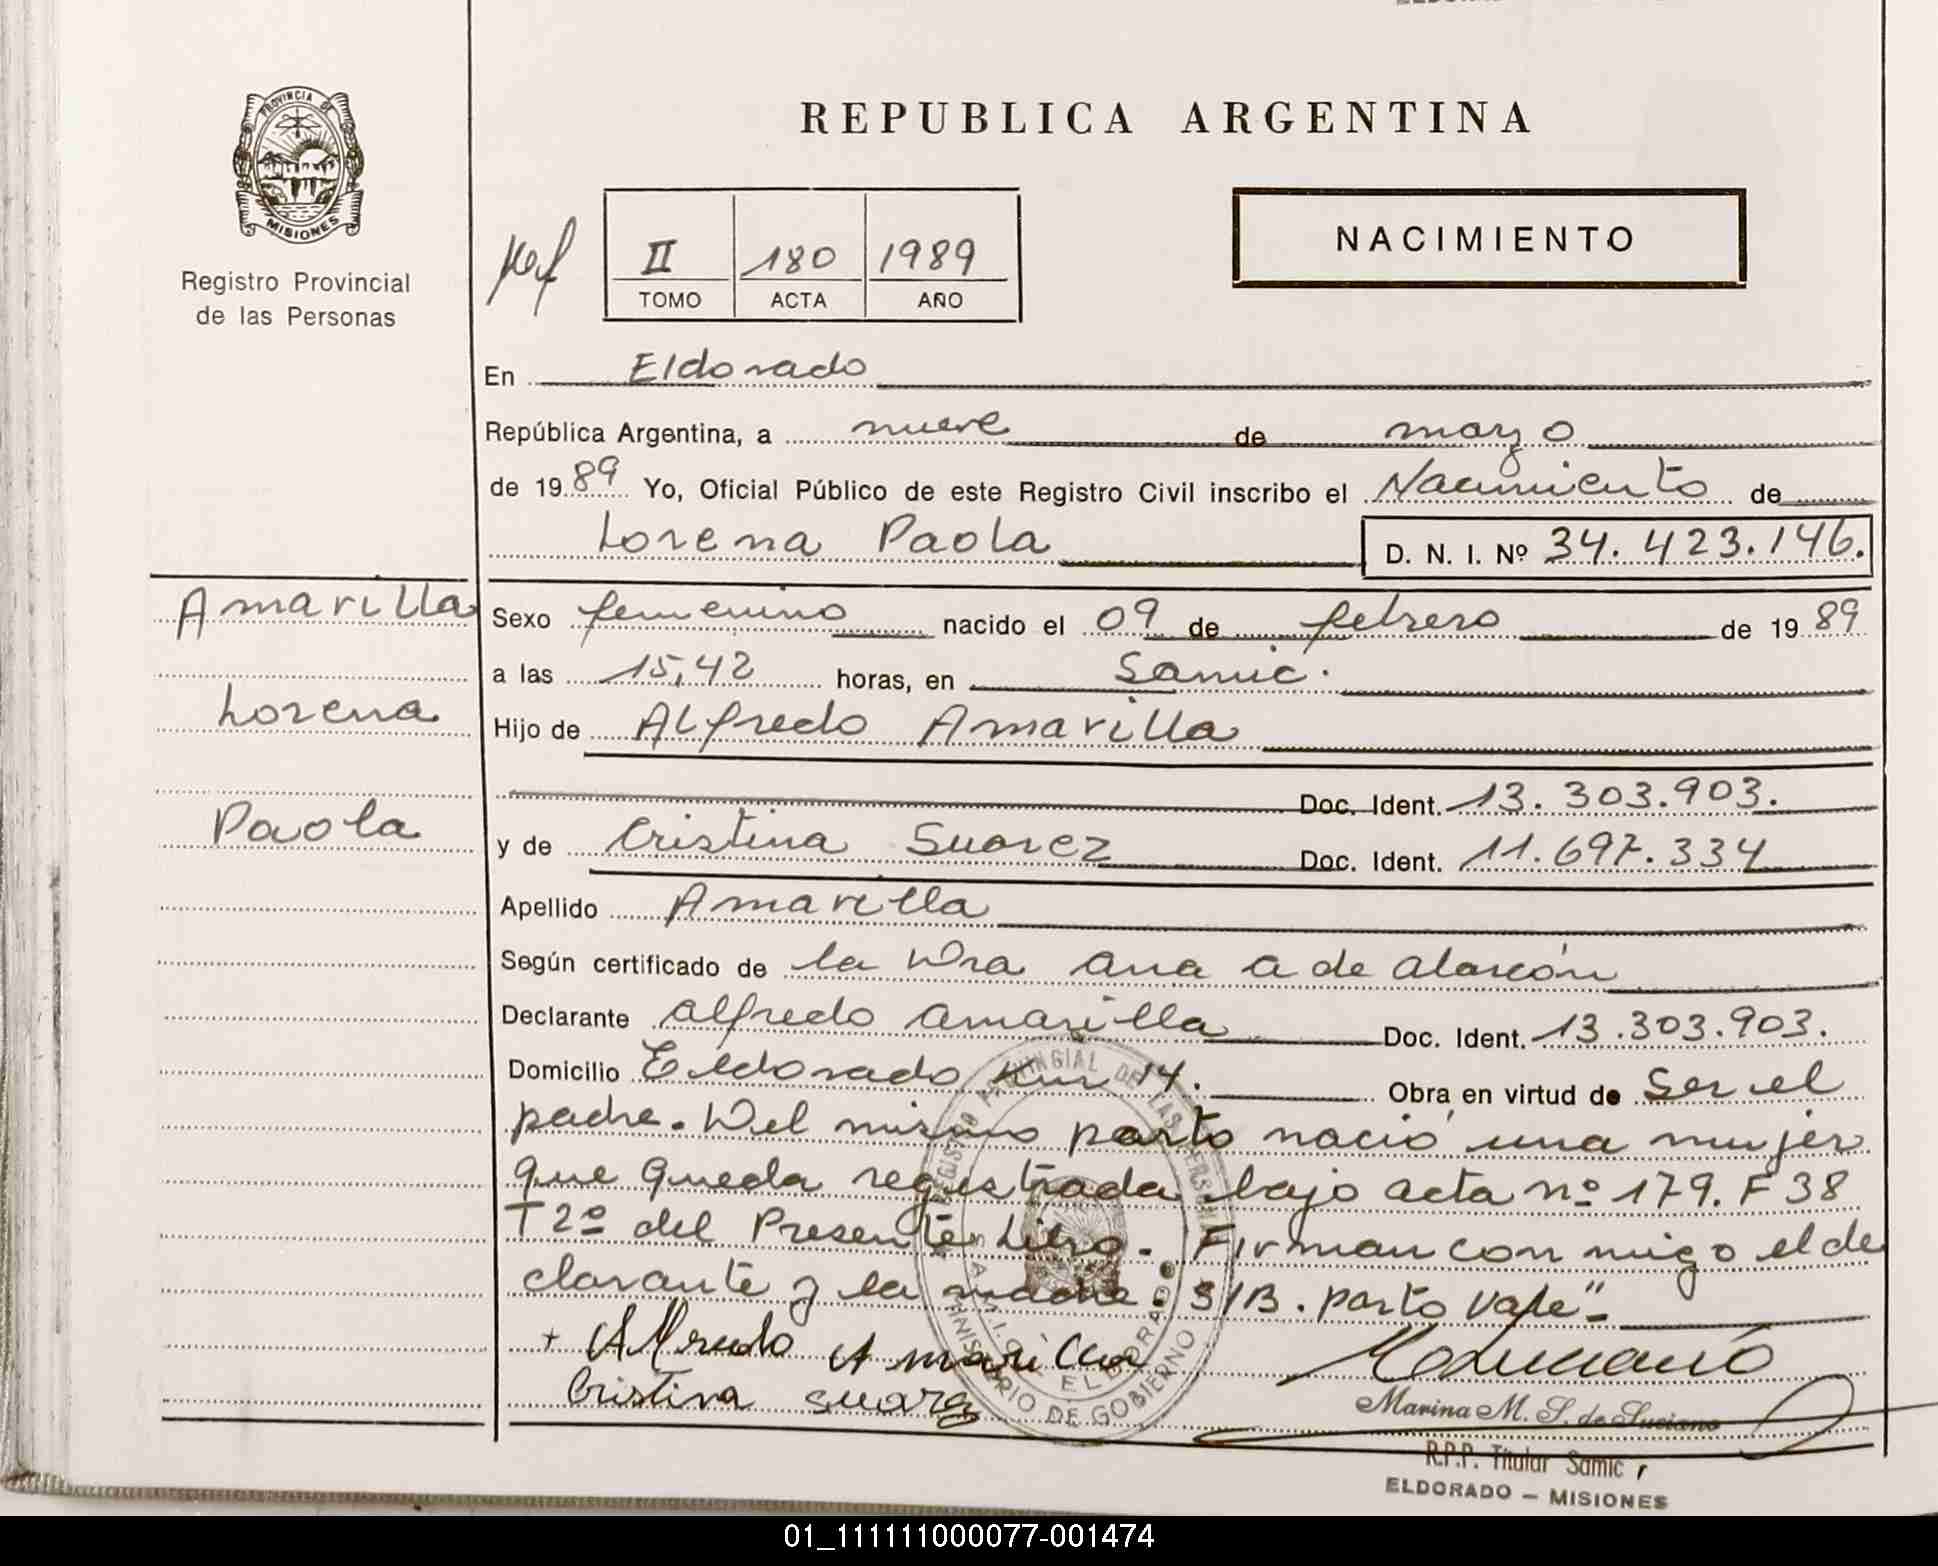 PROVINCIA DE
MISIONES
Registro Provincial
de las Personas
REPUBLICA ARGENTINA
II 180 1989
TOMO ACTA AÑO
NACIMIENTO
En Eldorado
República Argentina, a nueve de marzo
de 1989 Yo, Oficial Público de este Registro Civil inscribo el Nacimiento de
Lorena Paola D. N. I. Nº 34.423.146.
Amarilla
Lorena
Paola
Sexo femenino nacido el 09 de febrero de 1989
a las 15,42 horas, en Samic.
Hijo de Alfredo Amarilla
Doc. Ident. 13.303.903.
y de Cristina Suarez Doc. Ident. 11.697.334
Apellido Amarilla
Según certificado de la Dra Ana A de Alarcón
Declarante Alfredo Amarilla Doc. Ident. 13.303.903.
Domicilio Eldorado Km 14. Obra en virtud de Ser el
padre. Del mismo parto nació una mujer
que queda registrada bajo acta nº 179. F 38
T 2º del Presente Libro. Firman con migo el de
clarante y la madre. S/B. parto Vale"-
+ Alfredo Amarilla
Cristina Suarez
REGISTRO PROVINCIAL DE LAS PERSONAS
MINISTERIO DE GOBIERNO
S.A.M.I.C. ELDORADO
Marina M. S. de Luciano
R.P.P. Titular Samic
ELDORADO – MISIONES
01_111111000077-001474